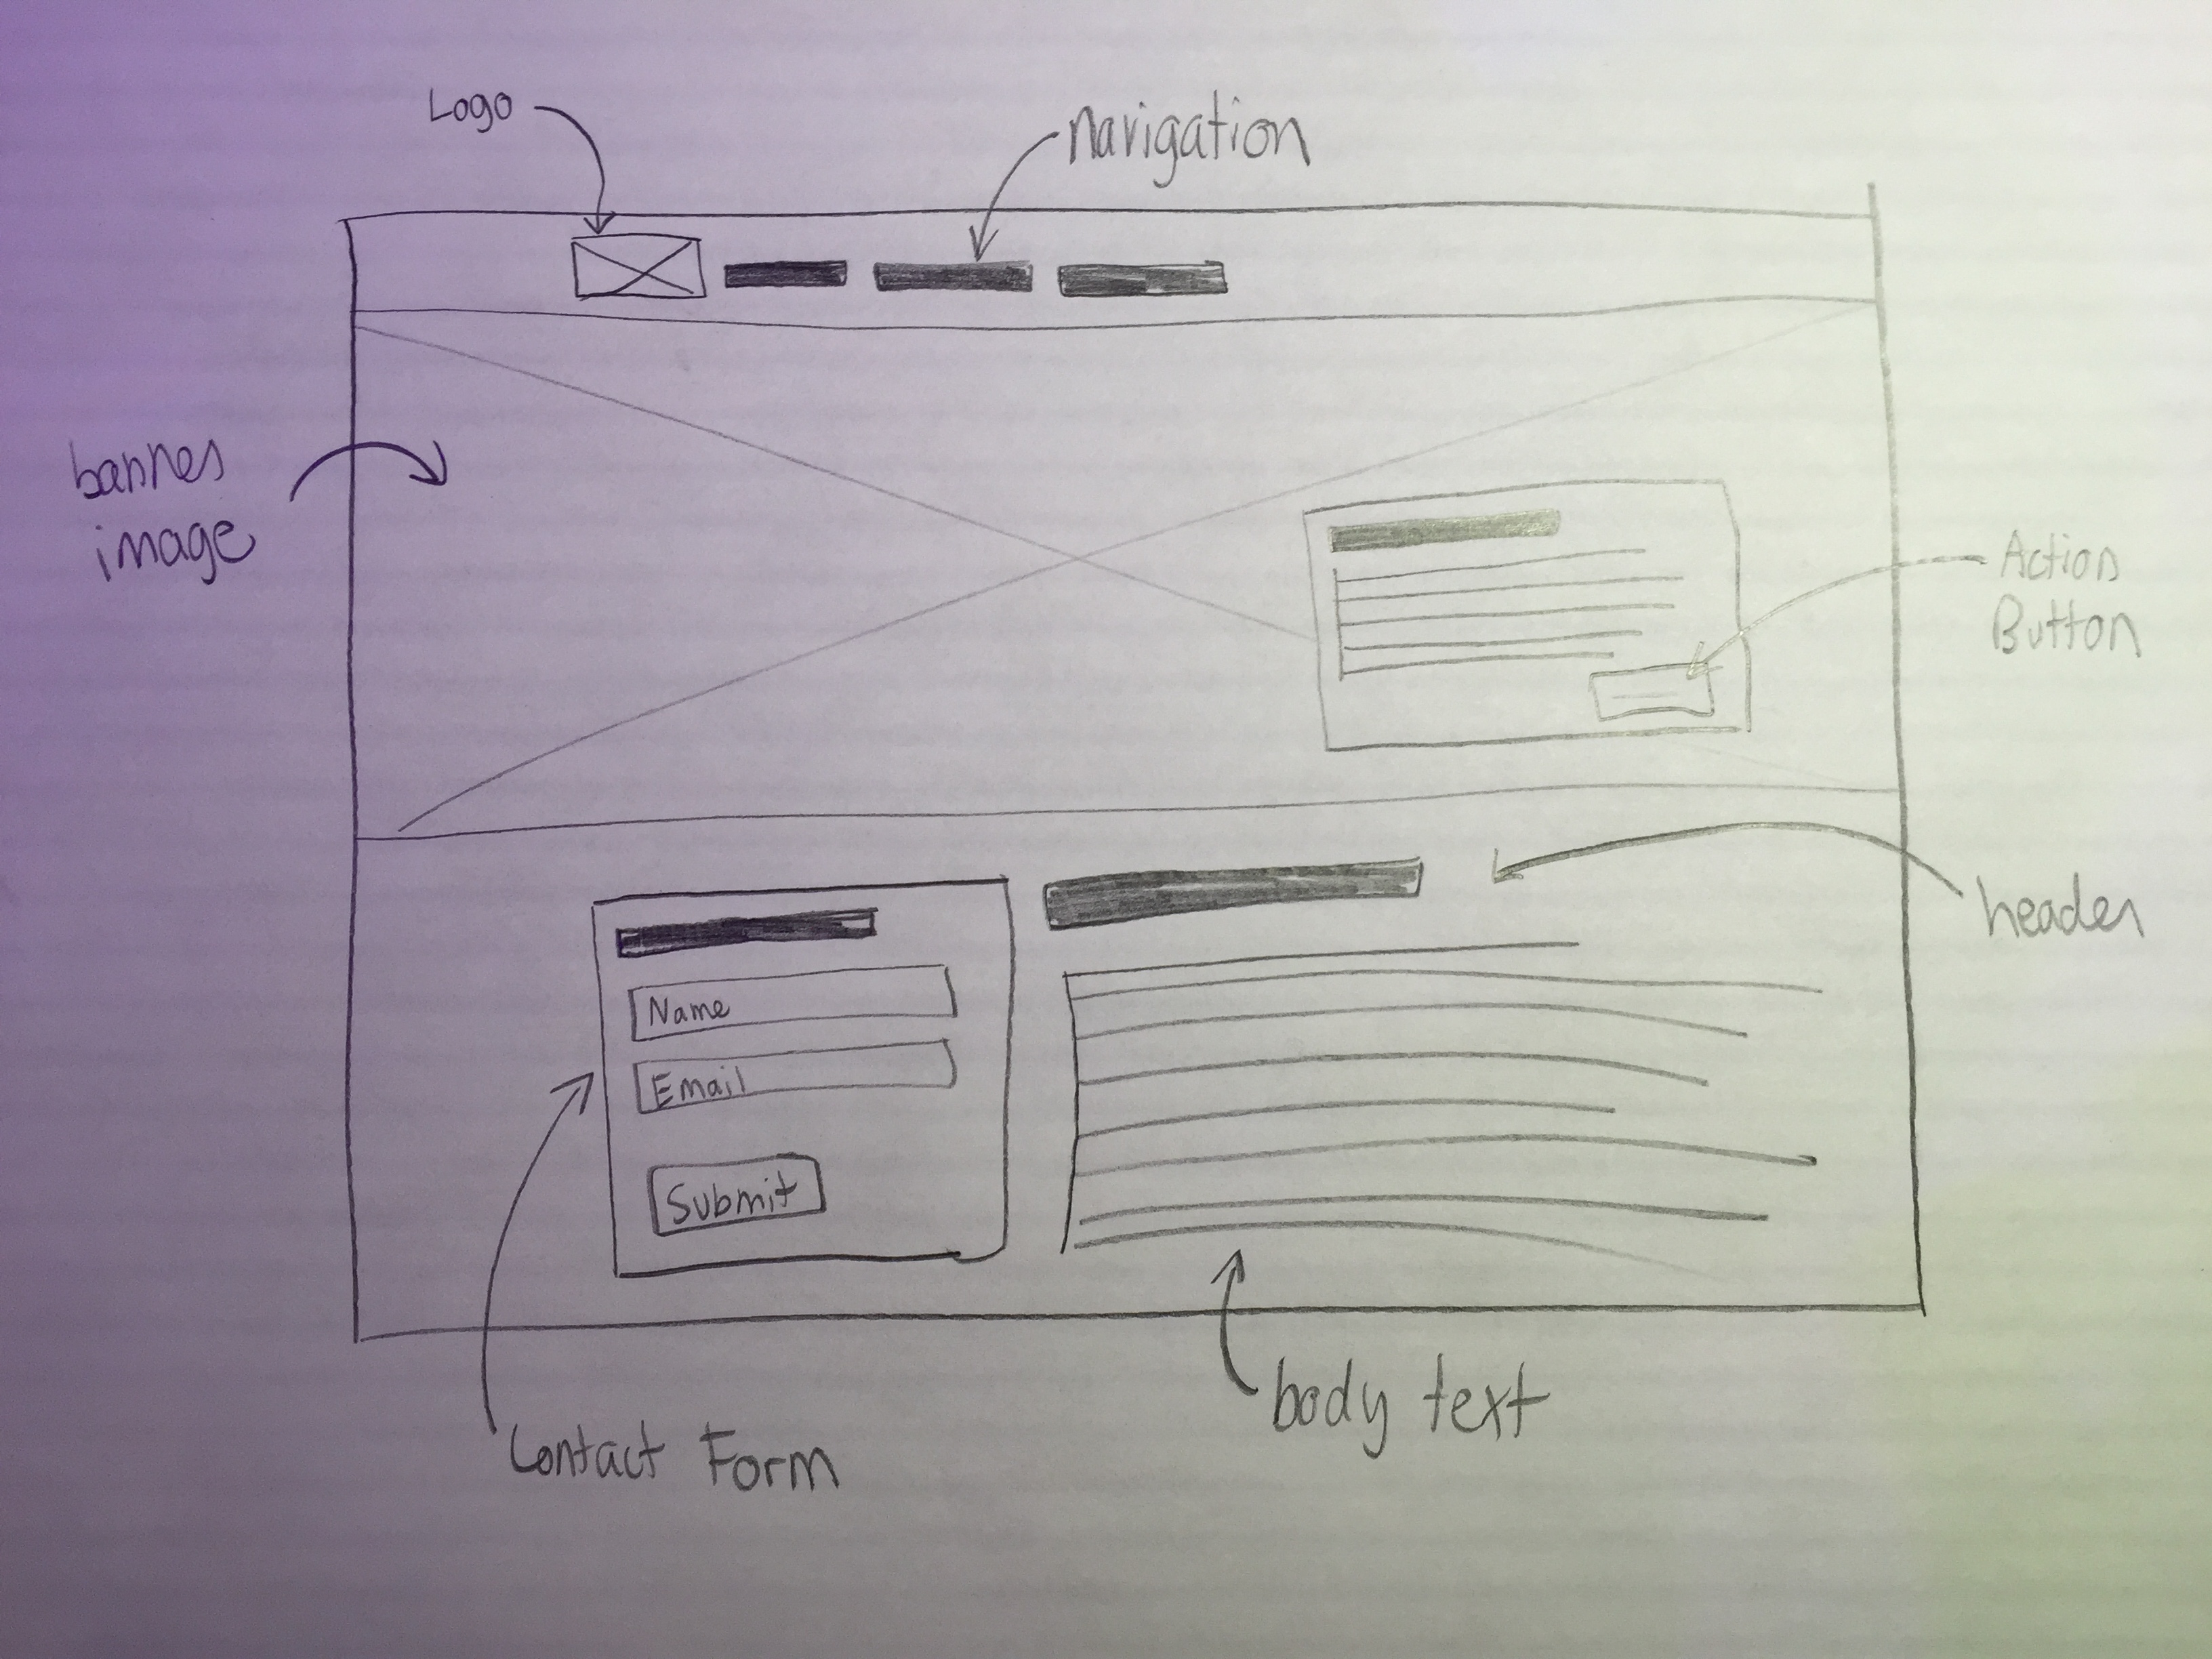 Logo
navigation
banner
image
Action
Button
header
Name
Email
Submit
Contact Form
body text